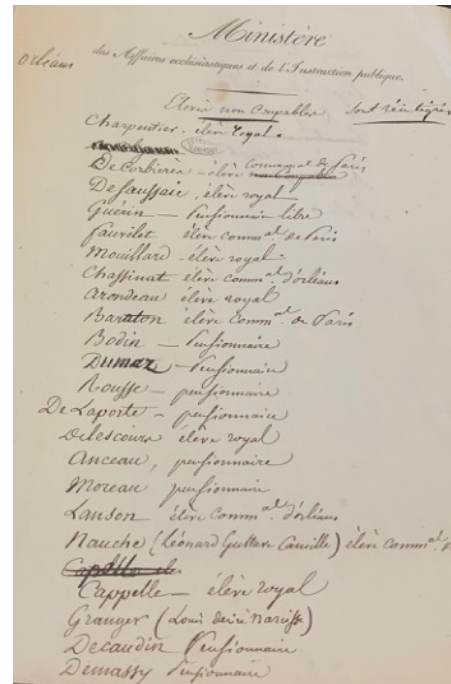 Ministère
des Affaires ecclésiastiques et de l'Instruction publique.
Orléans
Elèves non Coupables sont réintégrés
Charpentier - élève royal.
De Corbière - élève communal de Paris
Defaussaie, élève royal
Guérin - Pensionnaire libre
fauvelet élève comm.al de Paris
Mouillard - élève royal.
Chassinat élève comm.al d'orléans
arondeau élève royal
Baraton élève Comm.al de Paris
Bodin - Pensionnaire
Dumaz - Pensionnaire
Rousse - pensionnaire
De Laporte - pensionnaire
Delescours élève royal
anceau, pensionnaire
Moreau pensionnaire
Lanson élève Comm.al d'orléans
Nauche (Léonard Gustave Camille) élève comm.al
Cappelle - élève royal
Granger (Louis désiré Narcisse)
Decaudin Pensionnaire
Demassy Pensionnaire